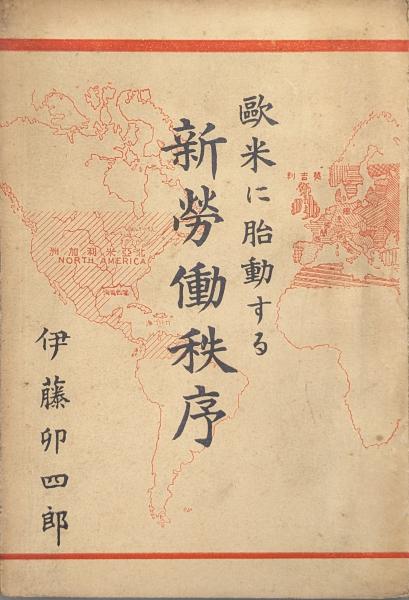 歐米に胎動する
新勞働秩序
伊藤卯四郎
英吉利
北亞米利加洲
NORTH AMERICA